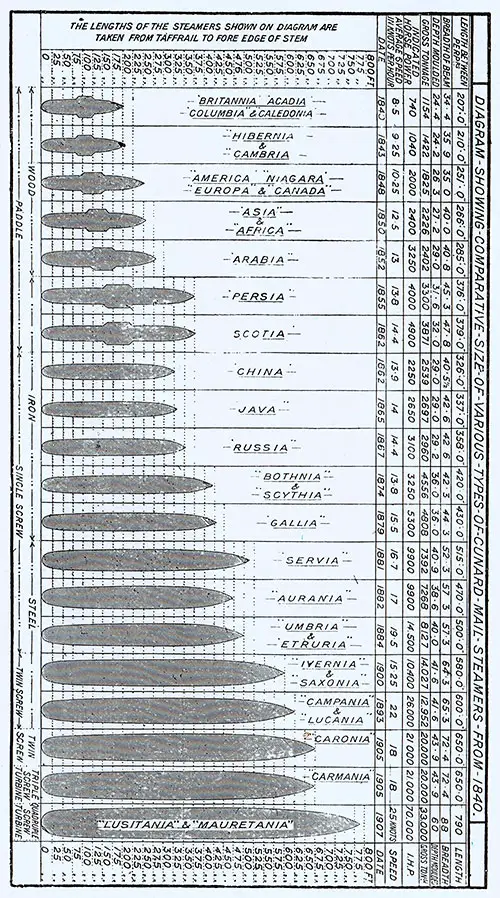 THE LENGTHS OF THE STEAMERS SHOWN ON DIAGRAM ARE
TAKEN FROM TAFFRAIL TO FORE EDGE OF STEM
DIAGRAM-SHOWING-COMPARATIVE-SIZE-OF-VARIOUS-TYPES-OF-CUNARD-MAIL-STEAMERS-FROM-1840.
0 25 50 75 100 125 150 175 200 225 250 275 300 325 350 375 400 425 450 475 500 525 550 575 600 625 650 675 700 725 750 775 800 FT
DATE
AVERAGE SPEED IN KNOTS P. HOUR
INDICATED HORSE POWER
GROSS TONNAGE
DEPTH MOULDED
BREADTH OF BEAM
LENGTH BETWEEN PERPS.
"BRITANNIA" "ACADIA"
"COLUMBIA" & "CALEDONIA" 1840 8·5 740 1154 24·4 34·4 207·0"
"HIBERNIA"
&
"CAMBRIA" 1843 9·25 1040 1422 24·2 35·9 210·0"
"AMERICA" "NIAGARA"
"EUROPA" & "CANADA" 1848 10·25 2000 1825 26·0 35·0 251·0"
"ASIA"
&
"AFRICA" 1850 12·5 2400 2226 27·2 40·0 266·0"
"ARABIA" 1852 13 3250 2402 29·0 40·8 285·0"
"PERSIA" 1855 13·8 4000 3300 31·6 45·3 376·0"
"SCOTIA" 1862 14·4 4900 3871 32·0 47·8 379·0"
"CHINA" 1862 13·9 2250 2539 29·0 40·5½ 326·0"
"JAVA" 1865 14 2650 2697 29·0 42·6 337·0"
"RUSSIA" 1867 14·4 3100 2960 29·2 42·6 358·0"
"BOTHNIA"
&
"SCYTHIA" 1874 13·8 3250 4556 36·0 42·3 420·0"
"GALLIA" 1879 15·5 5300 4808 36·0 44·3 430·0"
"SERVIA" 1881 16·7 9900 7392 40·9 52·3 515·0"
"AURANIA" 1882 17 9900 7268 38·6 57·3 470·0"
"UMBRIA"
&
"ETRURIA" 1884 19·5 14,500 8127 40·0 57·3 500·0"
"IVERNIA"
&
"SAXONIA" 1900 15·25 10,400 14,027 41·6 64·3 580·0"
"CAMPANIA"
&
"LUCANIA" 1893 22 26,000 12,952 41·6 65·3 600·0"
"CARONIA" 1905 18 21,000 20,000 43·9 72·4 650·0"
"CARMANIA" 1905 18 21,000 20,000 43·9 72·4 650·0"
"LUSITANIA" & "MAURETANIA" 1907 25 KNOTS 70,000 33,000 60 88 790
DATE
SPEED
I.H.P.
GROSS TONS
DEPTH MOULDED
BREADTH
LENGTH
WOOD
IRON
STEEL
PADDLE
SINGLE SCREW
TWIN SCREW
TWIN SCREW
TRIPLE SCREW TURBINE
QUADRUPLE SCREW TURBINE
0 25 50 75 100 125 150 175 200 225 250 275 300 325 350 375 400 425 450 475 500 525 550 575 600 625 650 675 700 725 750 775 800 FT